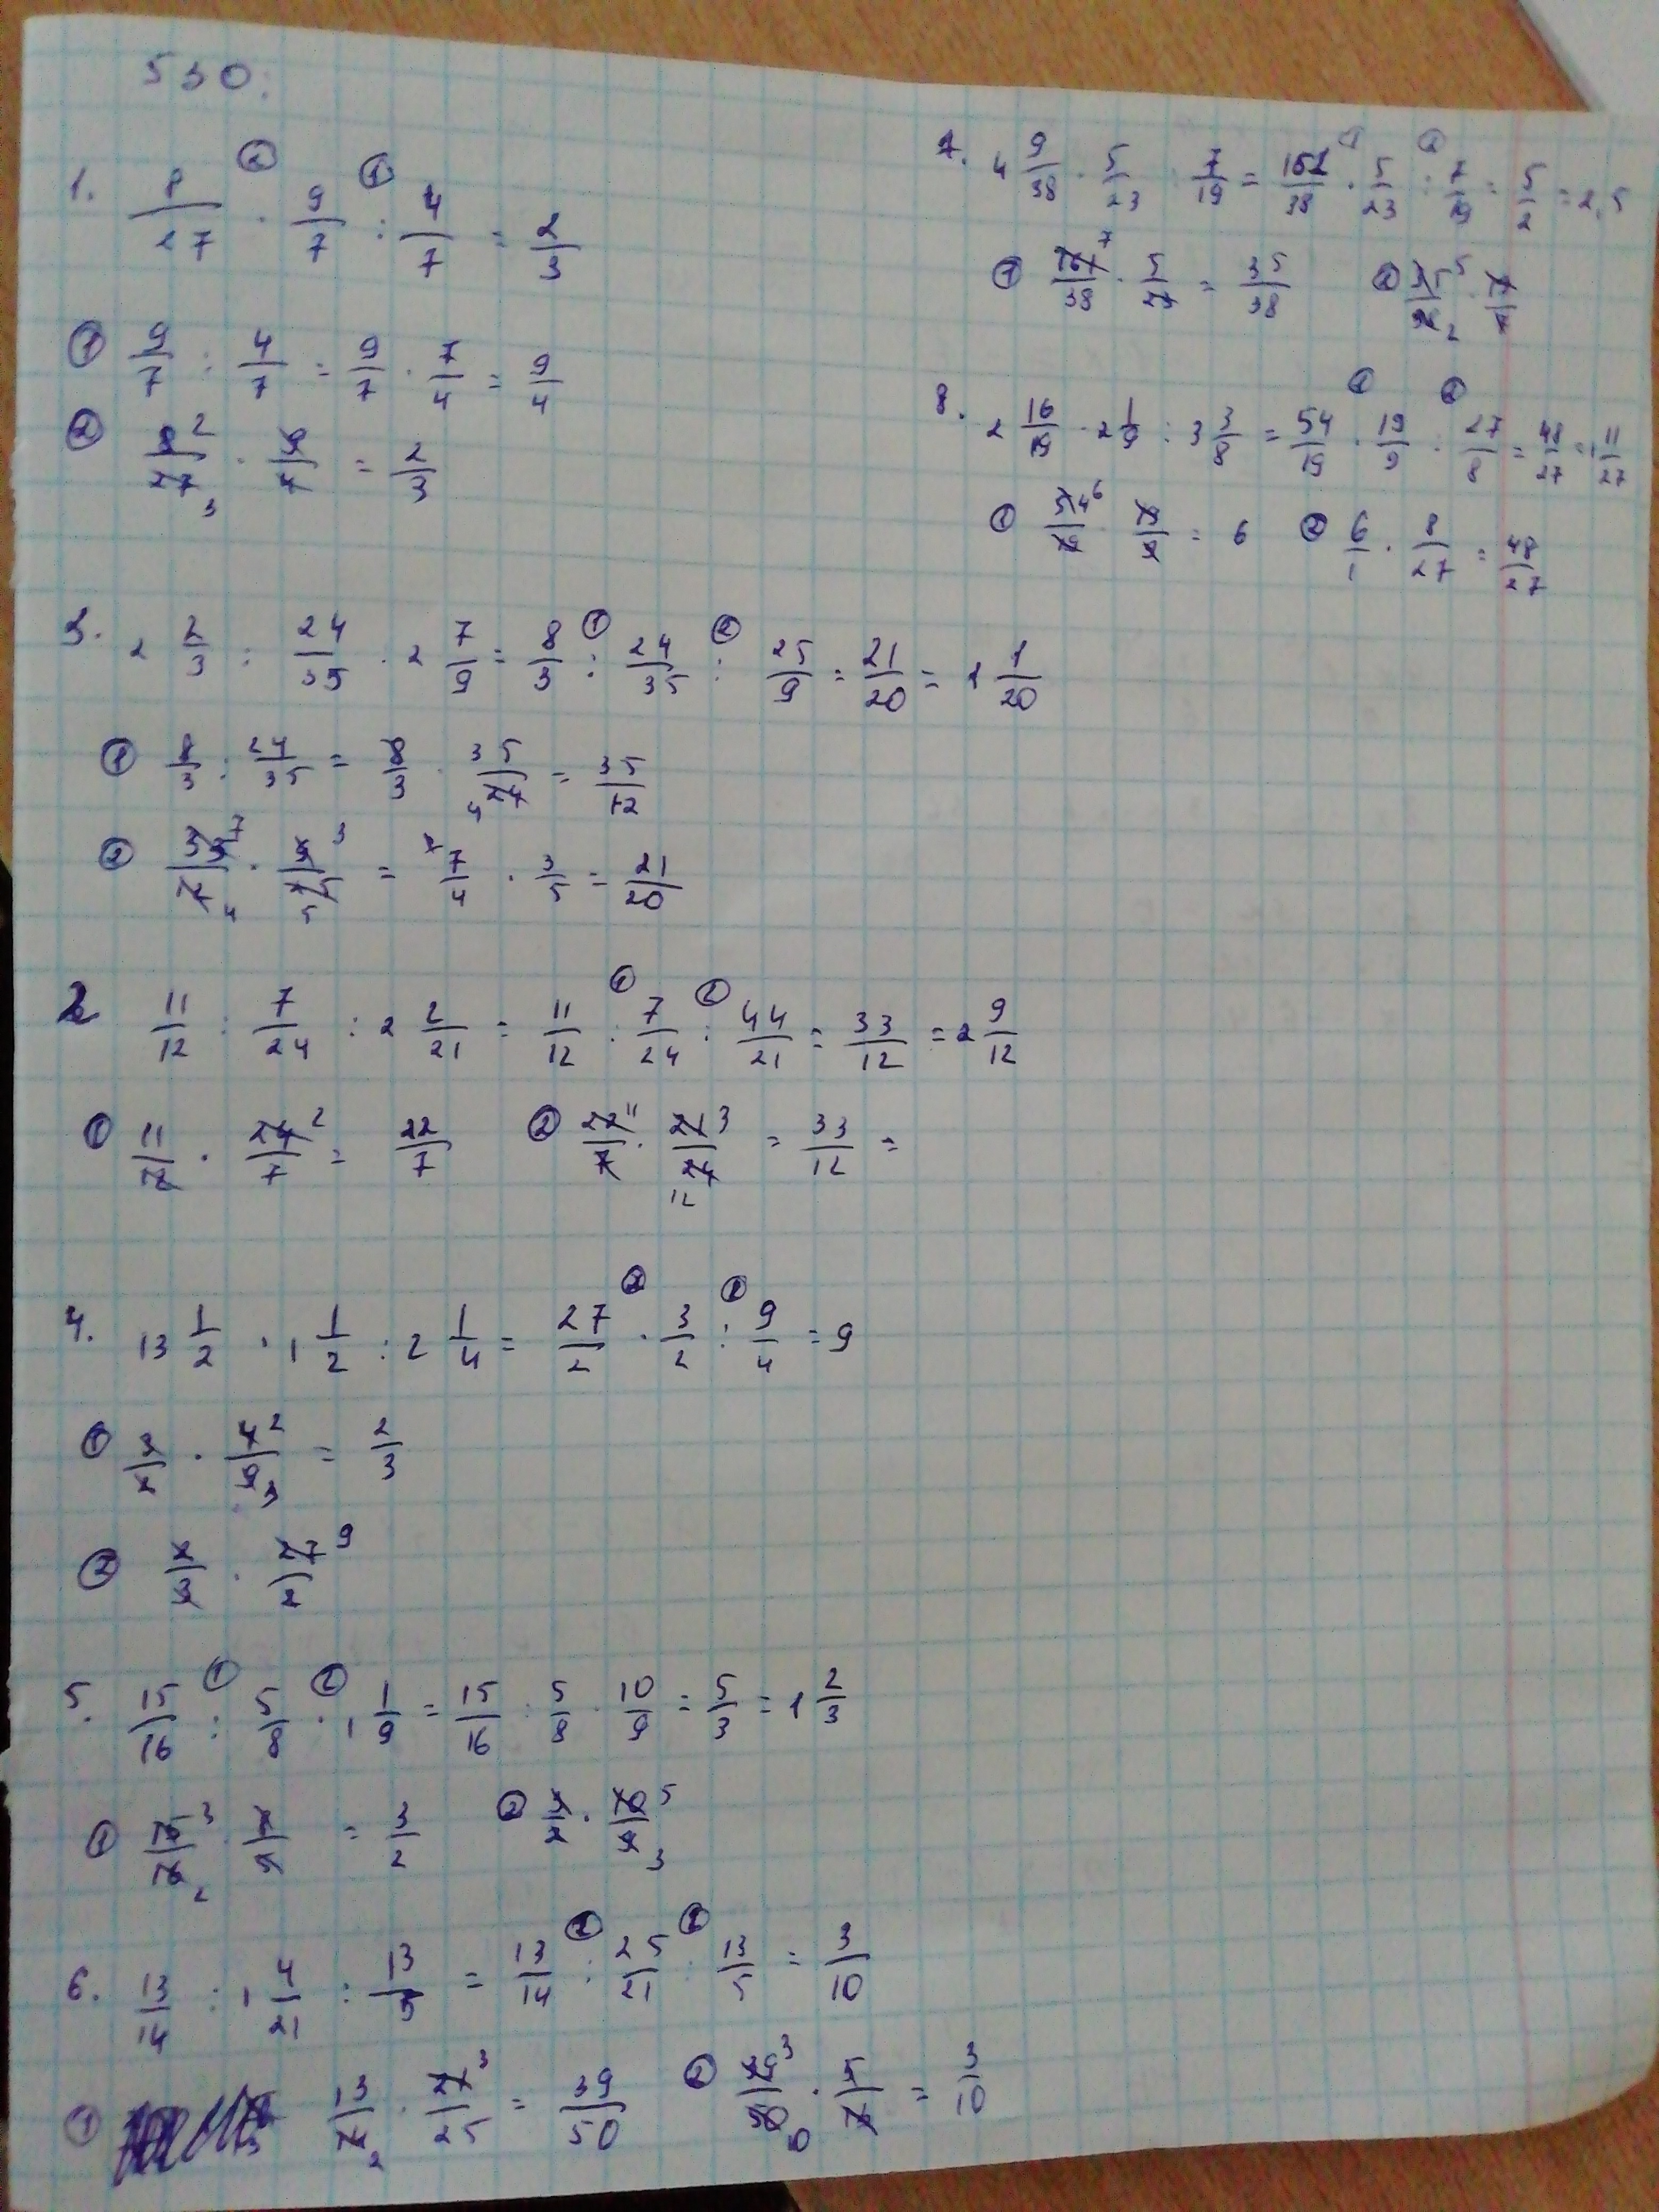 530.
1. 8/27 · 9/7 : 4/7 = 2/3
① 9/7 : 4/7 = 9/7 · 7/4 = 9/4
② 8²/27₃ · 9/4 = 2/3
3. 2 2/3 : 24/35 · 2 7/9 = 8/3 : 24/35 : 25/9 = 21/20 = 1 1/20
① 8/3 : 24/35 = 8/3 · 35/₄24 = 35/12
② 35⁷/12₄ · 9³/₅25 = 7/4 · 3/5 = 21/20
2 11/12 : 7/24 : 2 2/21 = 11/12 : 7/24 : 44/21 = 33/12 = 2 9/12
① 11/12 · 24²/7 = 22/7 ② 22¹¹/7 · 21³/24₁₂ = 33/12 =
4. 13 1/2 · 1 1/2 : 2 1/4 = 27/2 · 3/2 : 9/4 = 9
① 3/2 · 4²/9₃ = 2/3
② 2/3 · 27⁹/2
5. 15/16 : 5/8 · 1 1/9 = 15/16 : 5/8 · 10/9 = 5/3 = 1 2/3
① 15³/16₂ · 8/5 = 3/2 ② 3/2 · 10⁵/9₃
6. 13/14 : 1 4/21 : 13/5 = 13/14 : 25/21 : 13/5 = 3/10
① 13/14₂ · 21³/25 = 39/50 ② 39³/50₁₀ · 5/13 = 3/10
7. 4 9/38 · 5/23 : 7/19 = 161/38 · 5/23 : 7/19 = 5/2 = 2,5
① 161⁷/38 · 5/23 = 35/38 ② 35⁵/38₂ · 19/7
8. 2 16/19 · 2 1/9 : 3 3/8 = 54/19 · 19/9 : 27/8 = 48/27 = 1 11/27
① 54⁶/19 · 19/9 = 6 ② 6/1 · 8/27 = 48/27